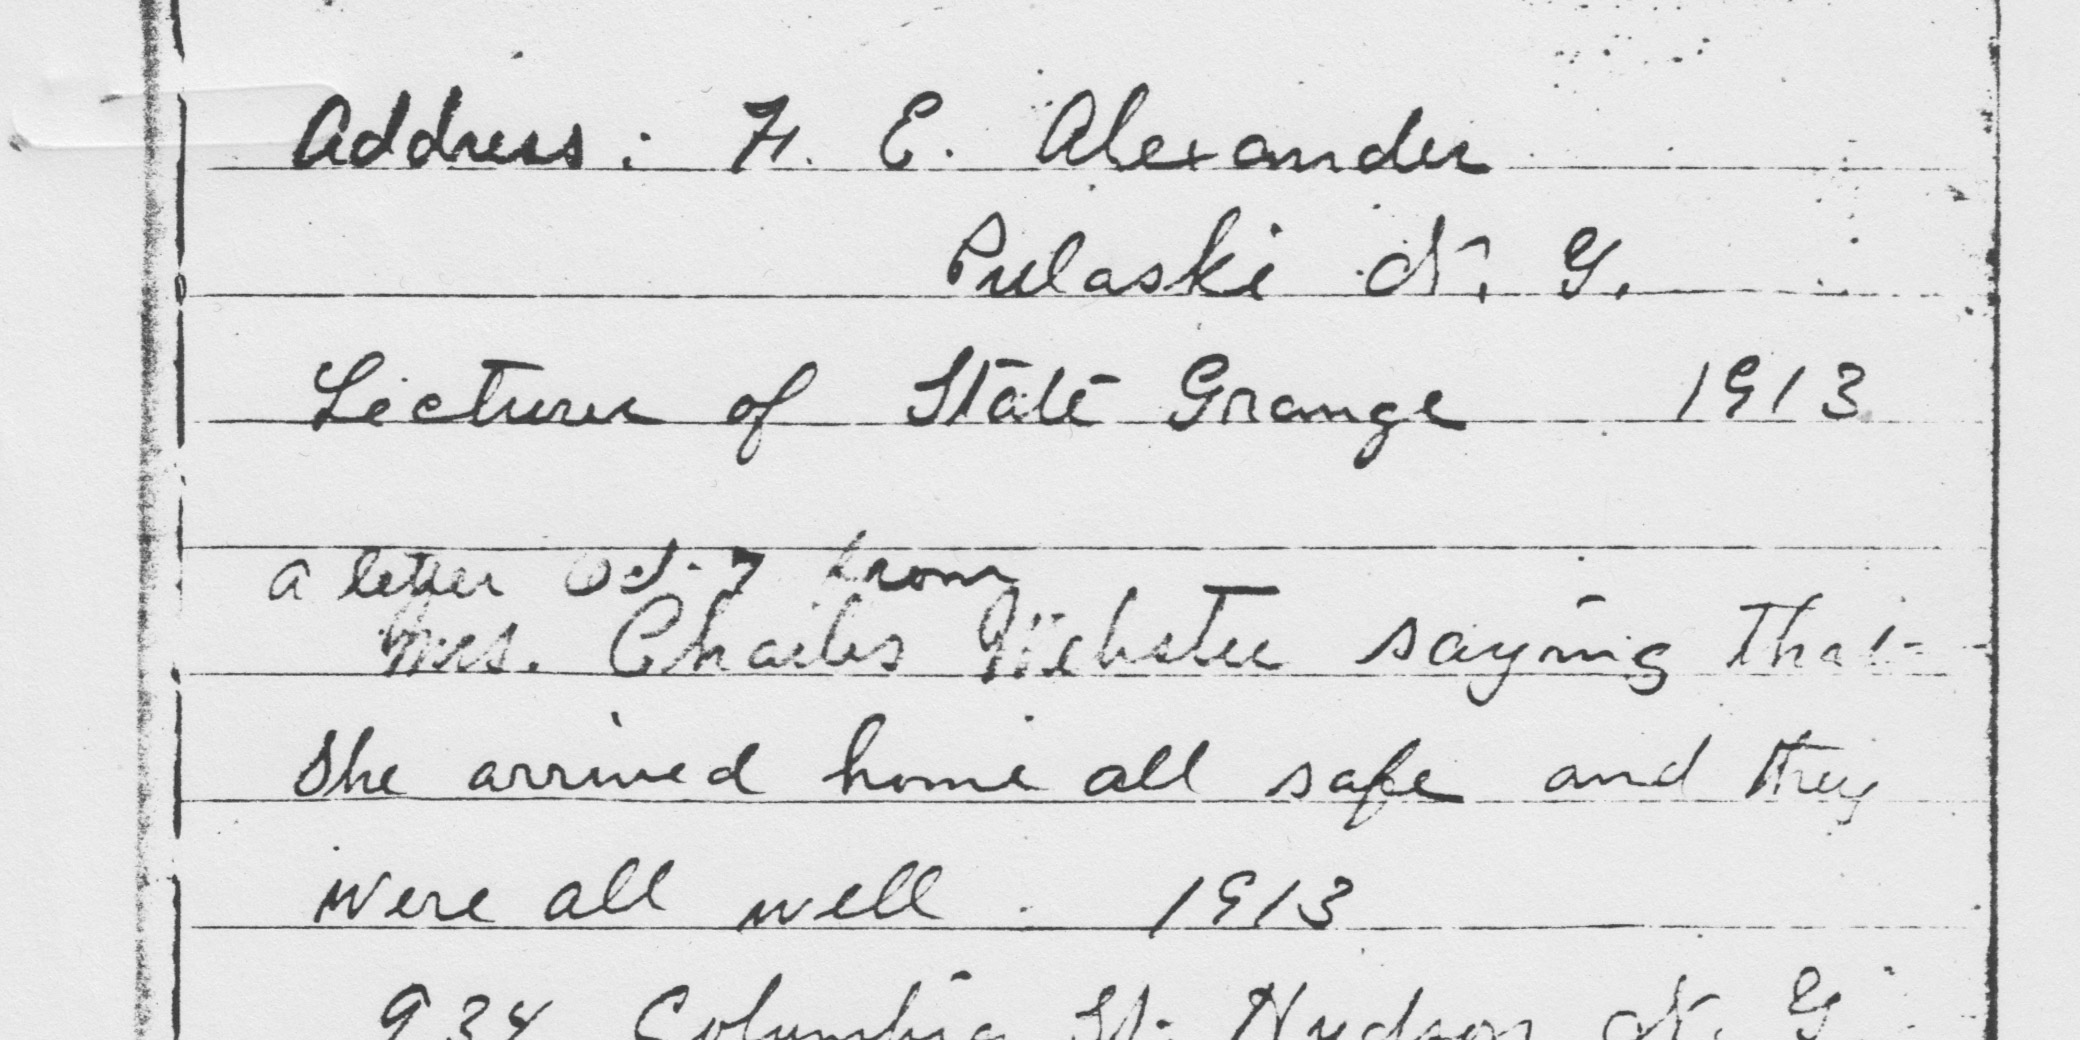 Address: F. E. Alexander
Pulaski N. Y.
Lecturer of State Grange 1913
a letter Oct. 7 from
Mrs. Charles Webster saying that
she arrived home all safe and they
were all well. 1913
934 Columbia St. Hudson N. Y.